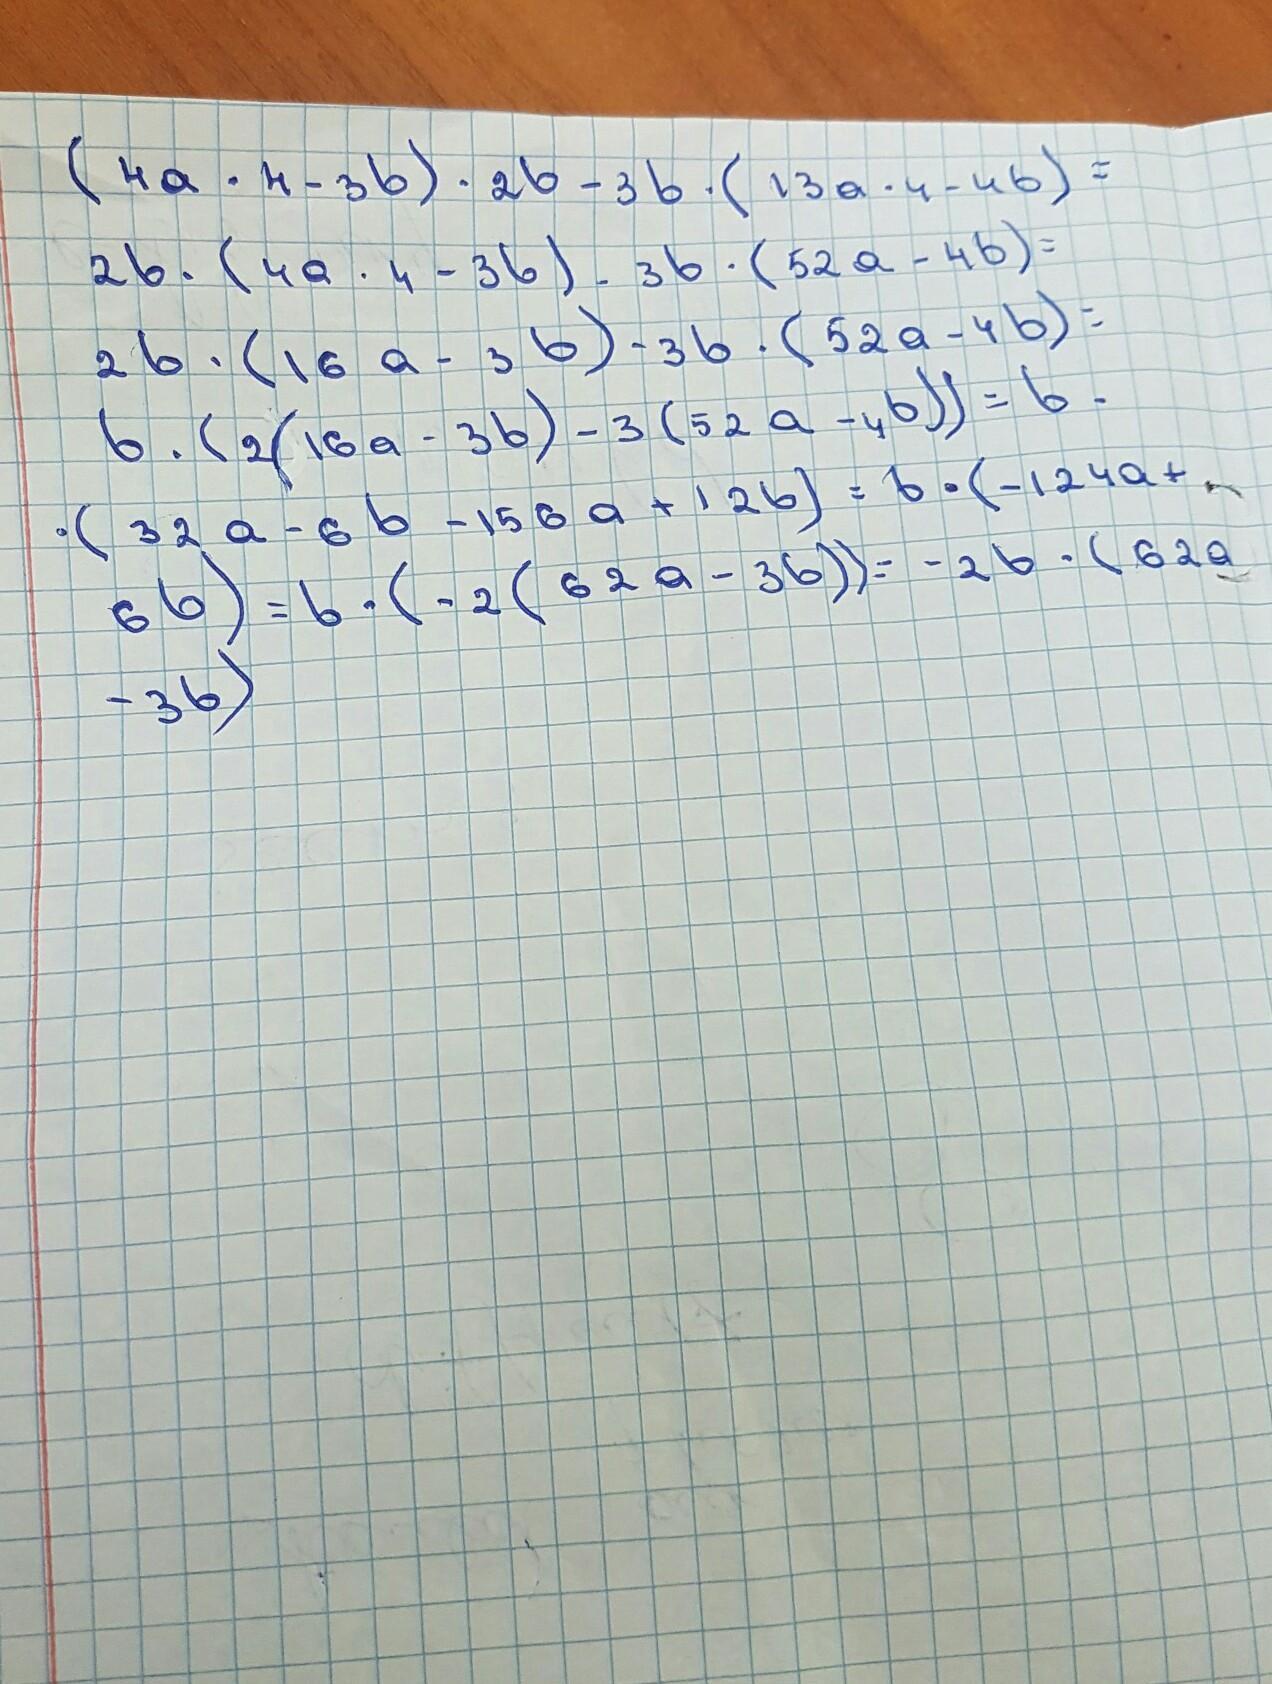 (4a · 4 - 3b) · 2b - 3b · (13a · 4 - 4b) =
2b · (4a · 4 - 3b) - 3b · (52a - 4b) =
2b · (16a - 3b) - 3b · (52a - 4b) =
b · (2(16a - 3b) - 3(52a - 4b)) = b ·
· (32a - 6b - 156a + 12b) = b · (-124a +
6b) = b · (-2(62a - 3b)) = -2b · (62a
- 3b)